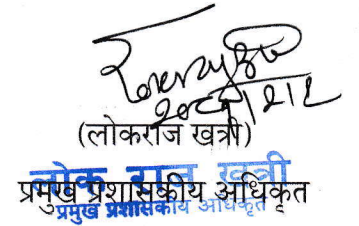 (लोकराज खत्री)
लोक राज खत्री
प्रमुख प्रशासकीय अधिकृत
प्रमुख प्रशासकीय अधिकृत